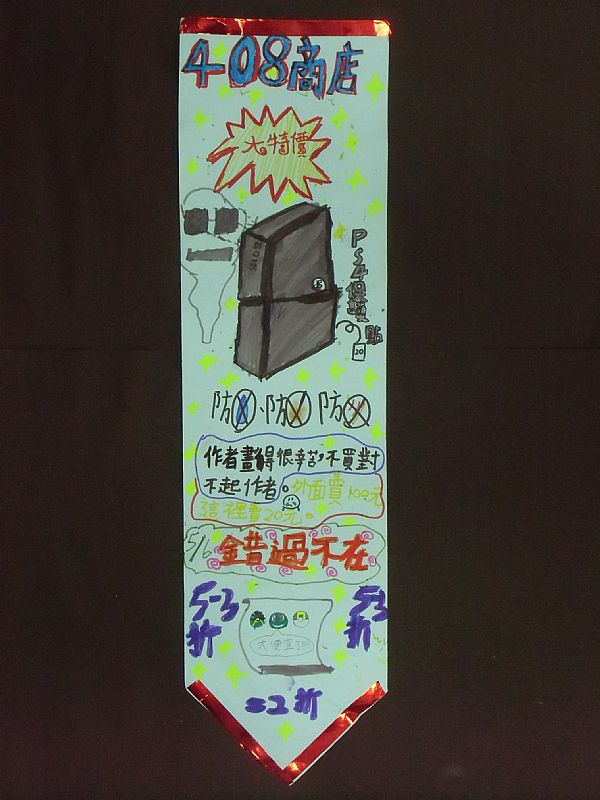 408商店
大特價
PS4
PS4保護
點
20
防 防 防
作者畫得很辛苦,不買對
不起作者。外面賣100元
這裡賣20元。
5/6 錯過不在
5-3 折
5-3 折
太便宜了吧
=2折